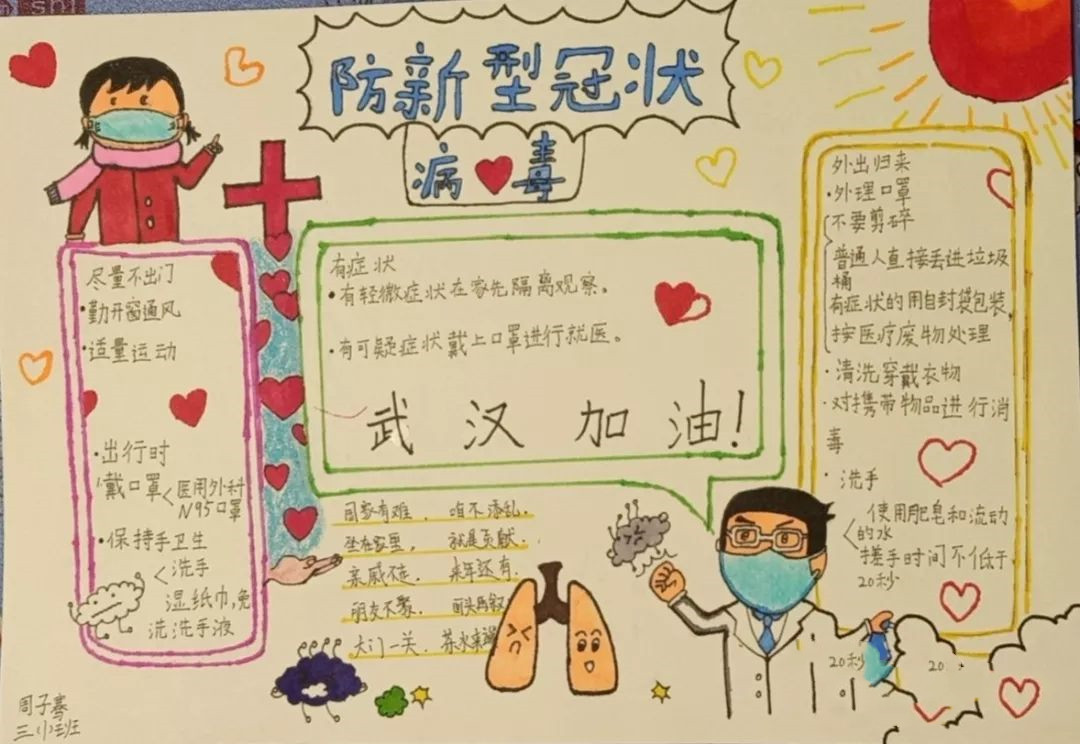 防新型冠状
病毒
尽量不出门
·勤开窗通风
·适量运动
·出行时
戴口罩<医用外科
N95口罩
·保持手卫生
<洗手
湿纸巾,免
洗洗手液
有症状
·有轻微症状在家先隔离观察。
·有可疑症状戴上口罩进行就医。
武汉加油!
国家有难,咱不添乱.
坐在家里,就是贡献.
亲戚不走,来年还有.
朋友不聚,回头再叙
大门一关,
外出归来
·处理口罩
不要剪碎
普通人直接丢进垃圾
桶
有症状的用自封袋包装,
按医疗废物处理
·清洗穿戴衣物
·对携带物品进行消
毒
·洗手
<使用肥皂和流动
的水
搓手时间不低于
20秒
20秒
20
周子骞
三(小)班